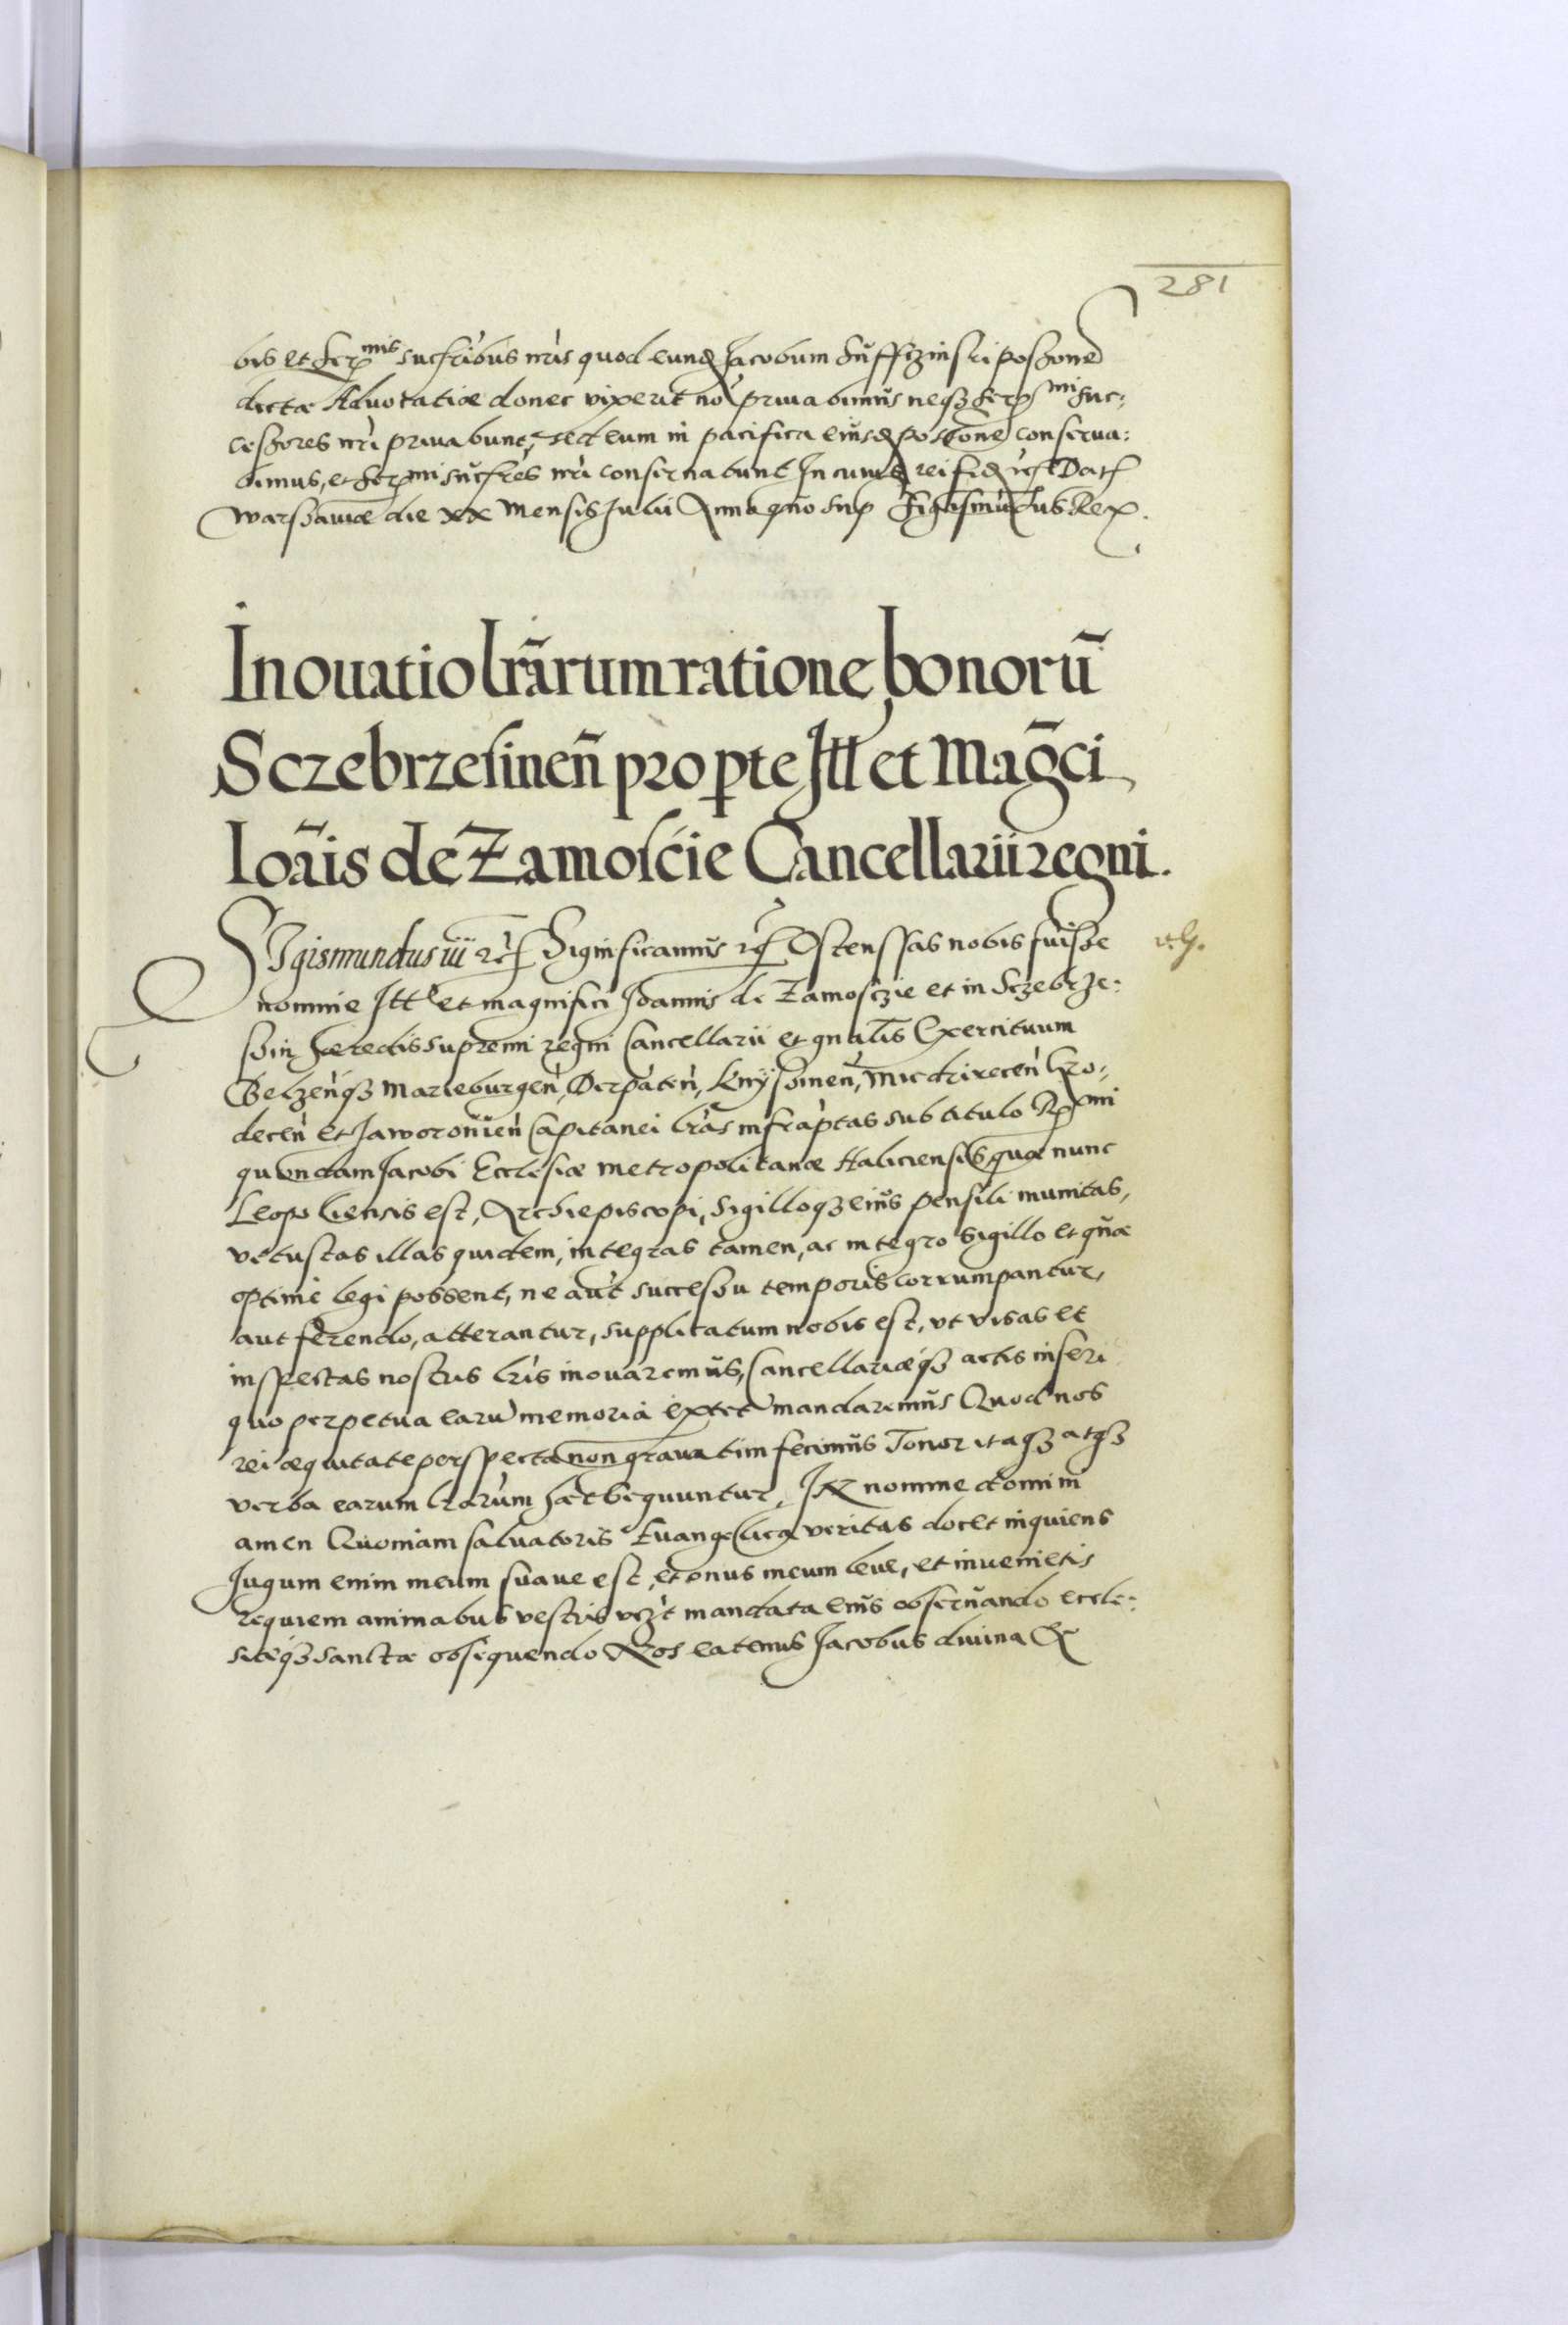 281
bis et Ser mis sucribus nris quod eund Jacobum Suffczinski possone
dictæ Aduocatiæ donec vixerit nō priuabimus neqз Ser mi suc:
cessores nri priuabunt, sed eum in pacifica eiusd possone conserua:
bimus, et Ser mi sucres nri conseruabunt In cuius rei fid rc Dat
Warssauiæ die XX mensis Julii Anno quo sup Sigismūdus Rex.
Inouatio lrãrum ratione bonorũ
Sczebrzesinen̄ pro pte Jll et Mag̃ci
Ioãis de Zamoscie Cancellarii regni.
SIgismundus iii rc Significamus rc Ostenssas nobis fuisse
nomine Jll et magnifici Joannis de Zamosczie et in Sczebrze:
ssin heredis supremi regni Cancellarii et gnalis Exercituum
Belzen̄qз Marieburgen̄, Derpaten̄, Knyssinen̄, Miedzirecen̄ Gro:
decen̄ et Jaworouien̄ Capitanei lrãs infraptas sub titulo R mi
quondam Jacobi Ecclesiæ metropolitanæ Haliciensis quæ nunc
Leopoliensis est, Archiepiscopi, sigilloqз eius pensili munitas,
vetustas illas quidem, integras tamen, ac integro sigillo et qũæ
optime legi possent, ne aũt successu temporis corrumpantur,
aut ferendo, atterantur, supplicatum nobis est, vt visas et
inspectas nostris lris inouaremus, Cancellariæqз actis inseri
quo perpetua earū memoria extet mandaremus Quod nos
rei æquitate perspecta non grauatim fecimus Tenor itaqз atqз
verba earum lrarum hæc sequuntur, IN nomine domini
amen Quoniam saluatoris Euangelica veritas docet inquiens
Jugum enim meum suaue est, et onus meum leue, et inuenietis
requiem animabus vestris vꝫt mandata eius obseruando eccle:
siæqз sanctæ obsequendo Nos eatenus Jacobus diuina et